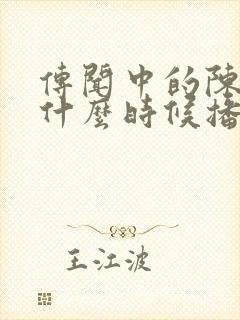 傳聞中的陳
什麼時候播
王江波